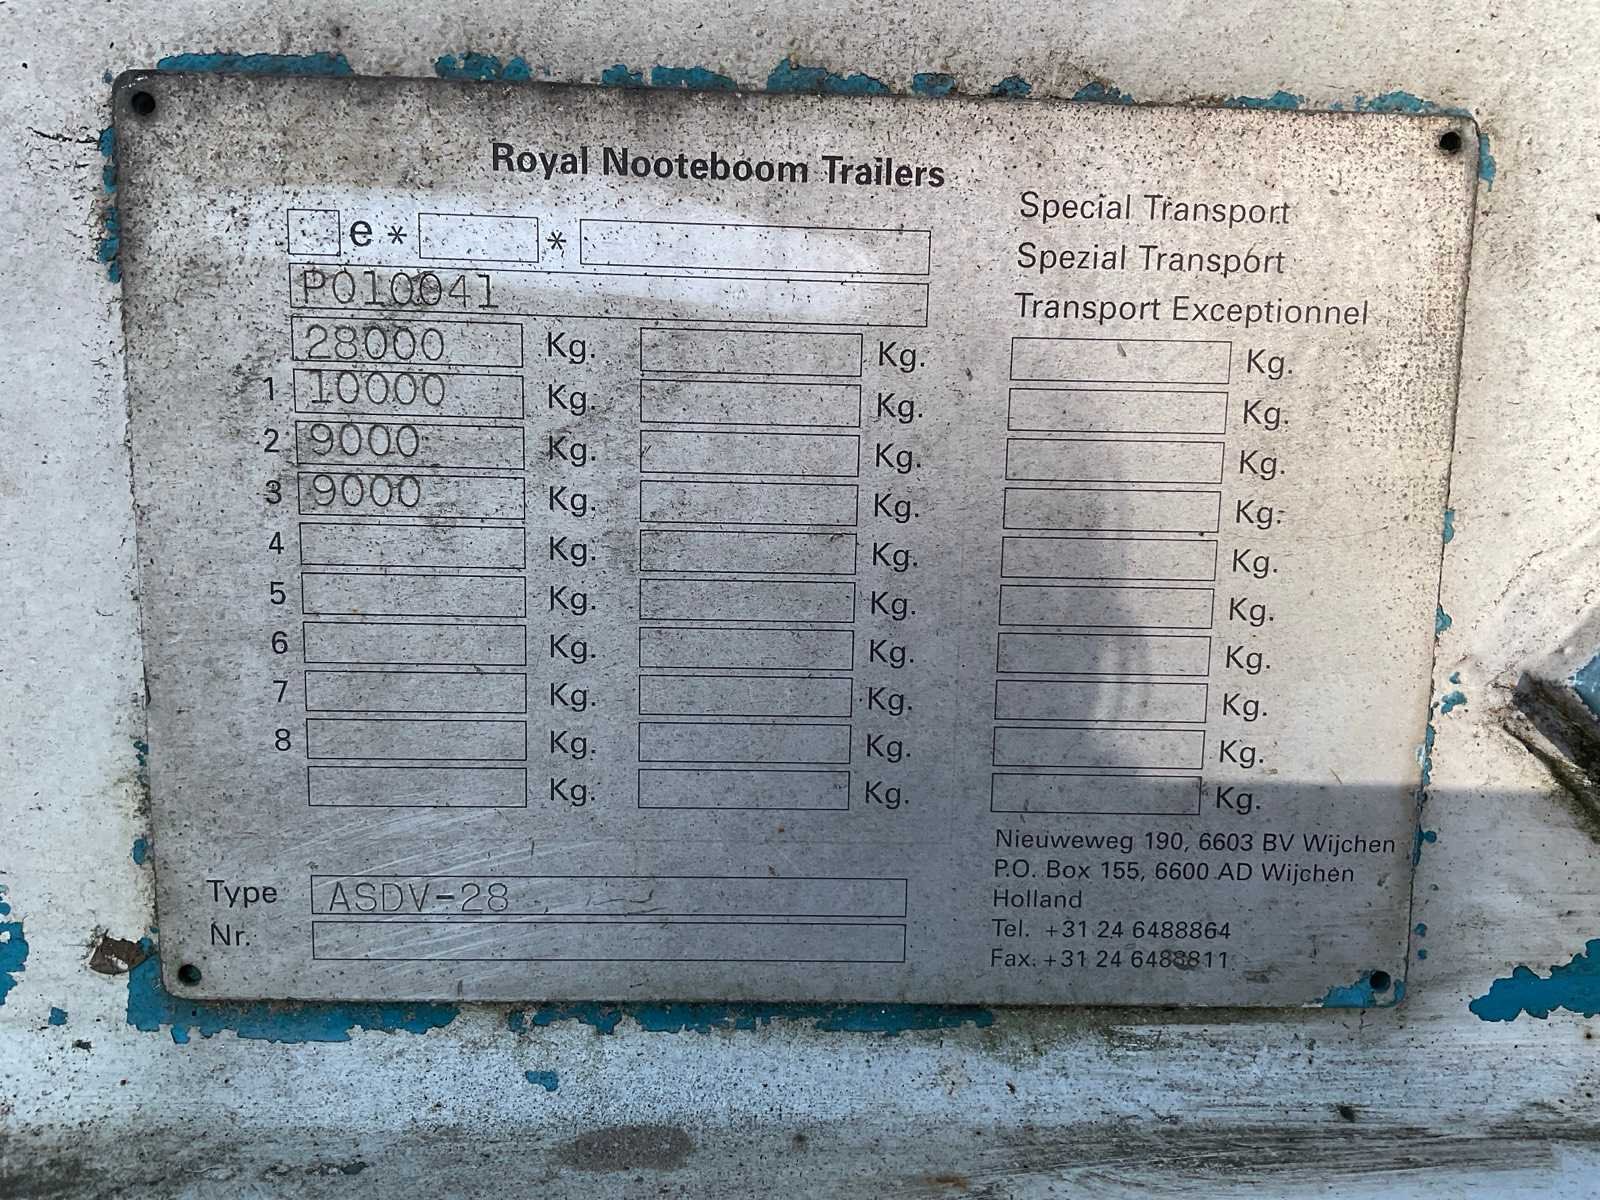 Royal Nooteboom Trailers
Special Transport
Spezial Transport
Transport Exceptionnel
e * *
P010041
28000 Kg. Kg. Kg.
1 10000 Kg. Kg. Kg.
2 9000 Kg. Kg. Kg.
3 9000 Kg. Kg. Kg.
4 Kg. Kg. Kg.
5 Kg. Kg. Kg.
6 Kg. Kg. Kg.
7 Kg. Kg. Kg.
8 Kg. Kg. Kg.
Kg. Kg. Kg.
Type ASDV-28
Nr.
Nieuweweg 190, 6603 BV Wijchen
P.O. Box 155, 6600 AD Wijchen
Holland
Tel. +31 24 6488864
Fax. +31 24 6488811